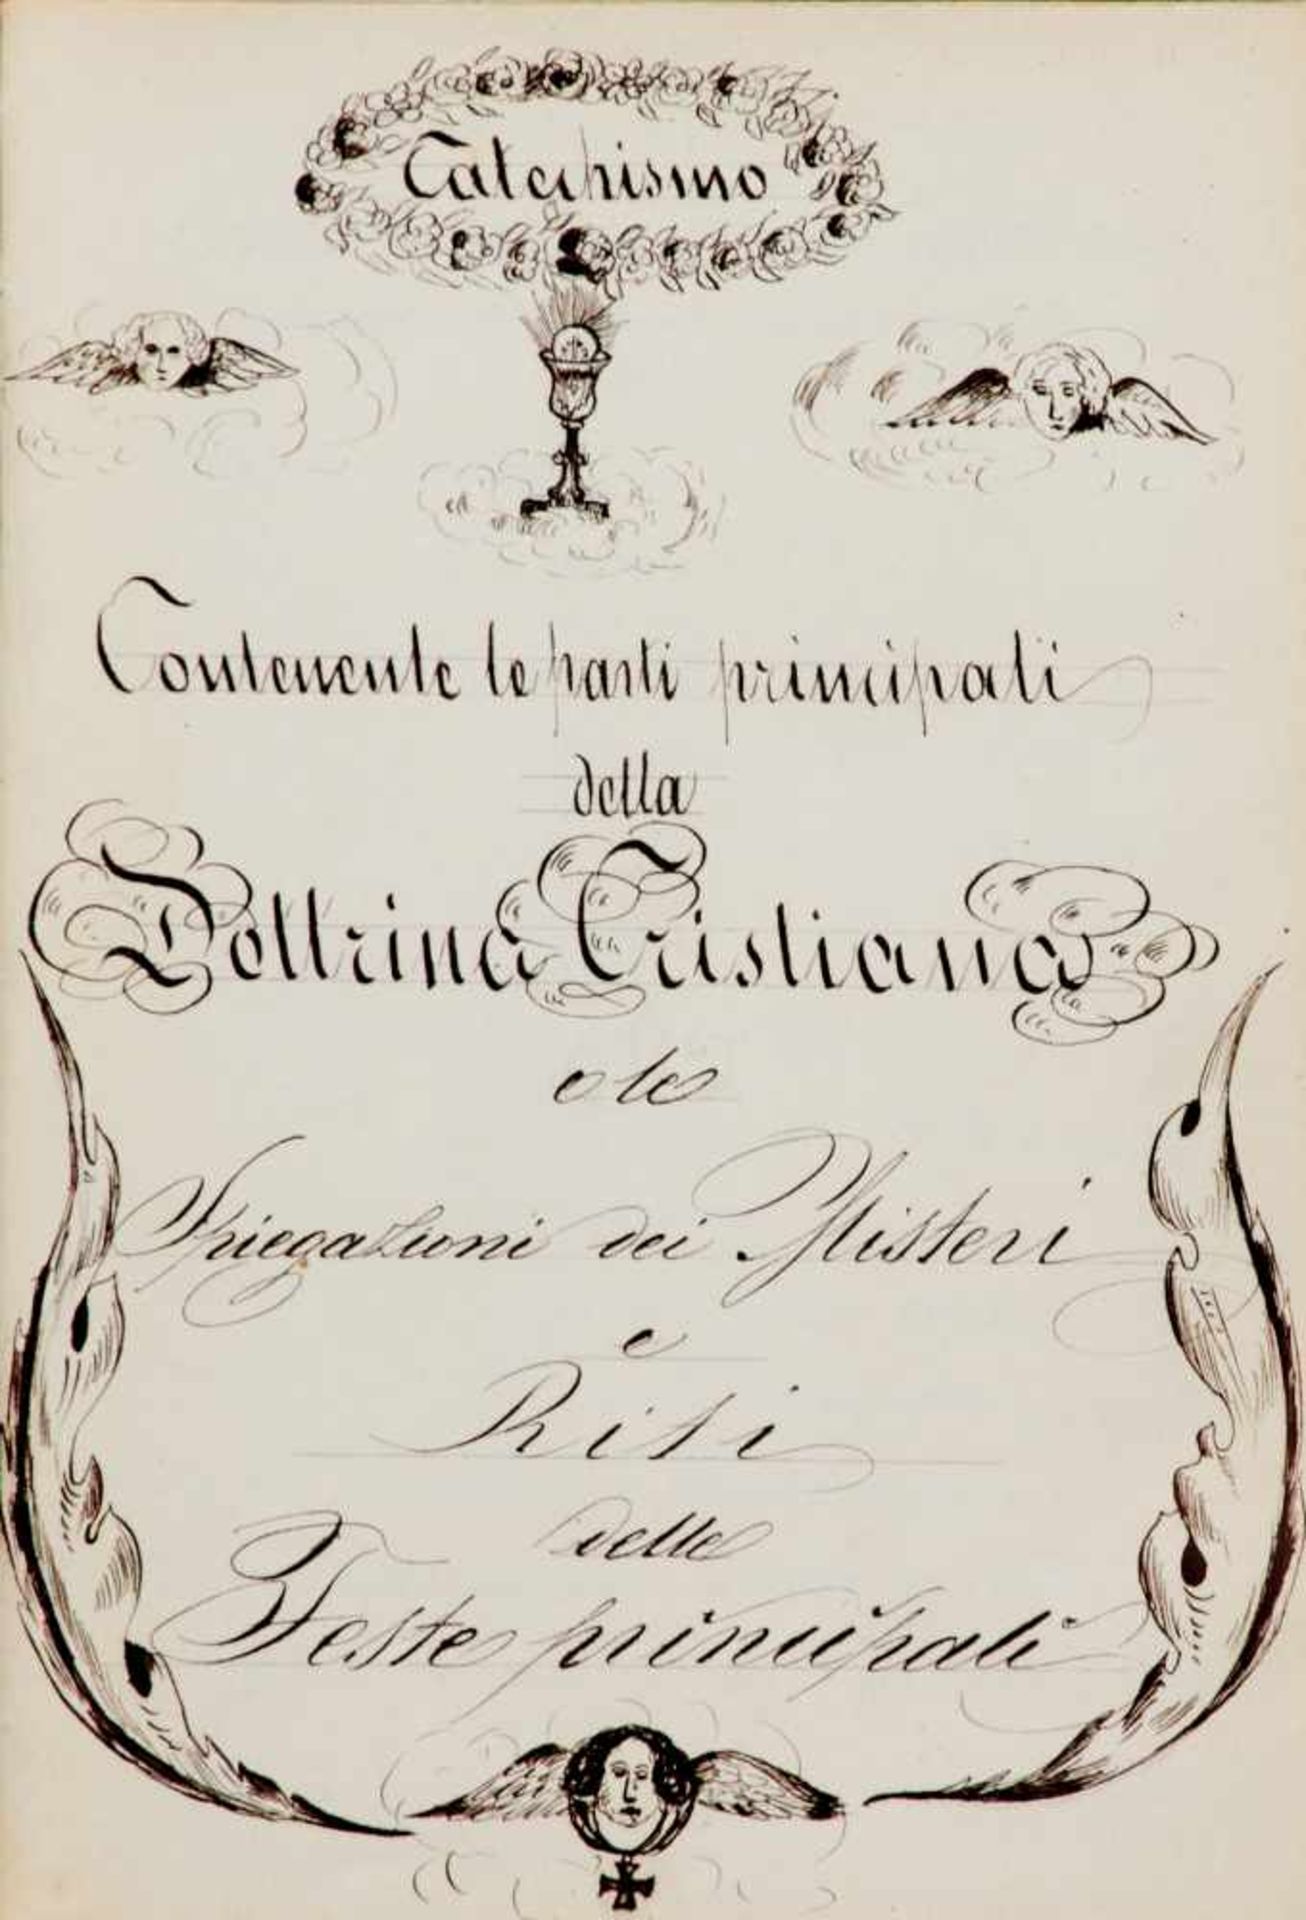 Catechismo
Contenente le parti principali
della
Dottrina Cristiana
e le
Spiegazioni dei Misteri
e
Riti
delle
Feste principali